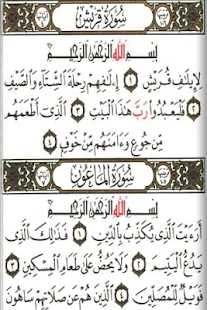 سُورَةُ قُرَيْشٍ
بِسْمِ ٱللَّهِ ٱلرَّحْمَٰنِ ٱلرَّحِيمِ
لِإِيلَٰفِ قُرَيْشٍ ١ إِۦلَٰفِهِمْ رِحْلَةَ ٱلشِّتَآءِ وَٱلصَّيْفِ
٢ فَلْيَعْبُدُوا۟ رَبَّ هَٰذَا ٱلْبَيْتِ ٣ ٱلَّذِىٓ أَطْعَمَهُم
مِّن جُوعٍ وَءَامَنَهُم مِّنْ خَوْفٍۭ ٤
سُورَةُ ٱلْمَاعُونِ
بِسْمِ ٱللَّهِ ٱلرَّحْمَٰنِ ٱلرَّحِيمِ
أَرَءَيْتَ ٱلَّذِى يُكَذِّبُ بِٱلدِّينِ ١ فَذَٰلِكَ ٱلَّذِى
يَدُعُّ ٱلْيَتِيمَ ٢ وَلَا يَحُضُّ عَلَىٰ طَعَامِ ٱلْمِسْكِينِ ٣
فَوَيْلٌ لِّلْمُصَلِّينَ ٤ ٱلَّذِينَ هُمْ عَن صَلَاتِهِمْ سَاهُونَ